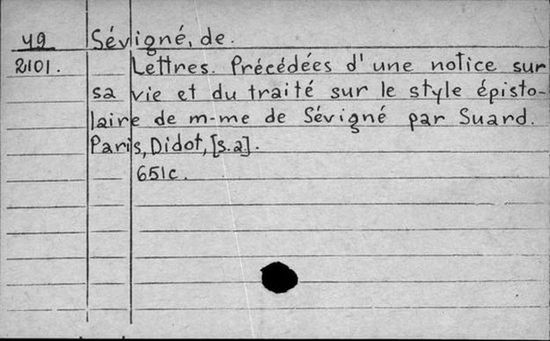 49 Sévigné, de.
2101. Lettres. Précédées d'une notice sur
sa vie et du traité sur le style épisto-
laire de m-me de Sévigné par Suard.
Paris, Didot, [s.a].
651c.